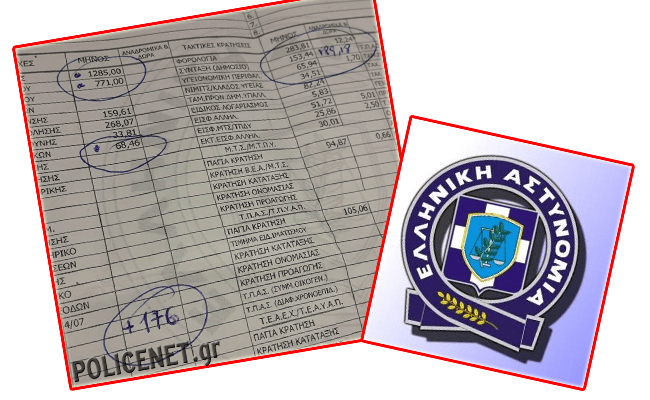 6.
7.
8.
ΚΕΣ ΜΗΝΟΣ ΑΝΑΔΡΟΜΙΚΑ & ΔΩΡΑ ΤΑΚΤΙΚΕΣ ΚΡΑΤΗΣΕΙΣ ΜΗΝΟΣ ΑΝΑΔΡΟΜΙΚΑ &
1285,00 ΦΟΡΟΛΟΓΙΑ 283,81
771,00 ΣΥΝΤΑΞΗ (ΔΗΜΟΣΙΟ) 153,44
ΥΓΕΙΟΝΟΜΙΚΗ ΠΕΡΙΘΑΛ. 65,94 1,70
ΝΙΜΙΤΣ/ΚΛΑΔΟΣ ΥΓΕΙΑΣ 34,51
159,61 ΤΑΜ.ΠΡΟΝ.ΔΗΜ.ΥΠΑΛΛ. 82,24
268,07 ΕΙΔΙΚΟΣ ΛΟΓΑΡΙΑΣΜΟΣ 5,83 5,01
33,81 ΕΙΣΦ.ΑΛΛΗΛ. 51,72 2,50
68,46 ΕΙΣΦ.ΜΤΣ/ΤΠΔΥ 25,86
ΕΚΤ.ΕΙΣΦ.ΑΛΛΗΛ. 30,01
Μ.Τ.Σ./Μ.Τ.Π.Υ. 94,87 0,66
ΠΑΓΙΑ ΚΡΑΤΗΣΗ
ΚΡΑΤΗΣΗ Β.Ε.Α./Μ.Τ.Σ.
ΚΡΑΤΗΣΗ ΚΑΤΑΤΑΞΗΣ
ΚΡΑΤΗΣΗ ΟΝΟΜΑΣΙΑΣ
ΚΡΑΤΗΣΗ ΠΡΟΑΓΩΓΗΣ
Τ.Π.Α.Σ./Τ.Π.Υ.Α.Π. 105,06
ΠΑΓΙΑ ΚΡΑΤΗΣΗ
ΤΜΗΜΑ ΕΙΔ.ΙΜΑΤΙΣΜΟΥ
ΚΡΑΤΗΣΗ ΚΑΤΑΤΑΞΗΣ
ΚΡΑΤΗΣΗ ΟΝΟΜΑΣΙΑΣ
ΚΡΑΤΗΣΗ ΠΡΟΑΓΩΓΗΣ
Τ.Π.Α.Σ. (ΣΥΜΜ.ΟΙΚΟΓΕΝ.)
4/07 Τ.Π.Α.Σ. (ΔΙΑΦ.ΧΡΟΝΟΕΠΙΔ.)
+176 Τ.Ε.Α.Ε.Χ/Τ.Ε.Α.Υ.Α.Π.
ΠΑΓΙΑ ΚΡΑΤΗΣΗ
ΚΡΑΤΗΣΗ ΚΑΤΑΤΑΞΗΣ
POLICENET.gr
ΕΛΛΗΝΙΚΗ ΑΣΤΥΝΟΜΙΑ